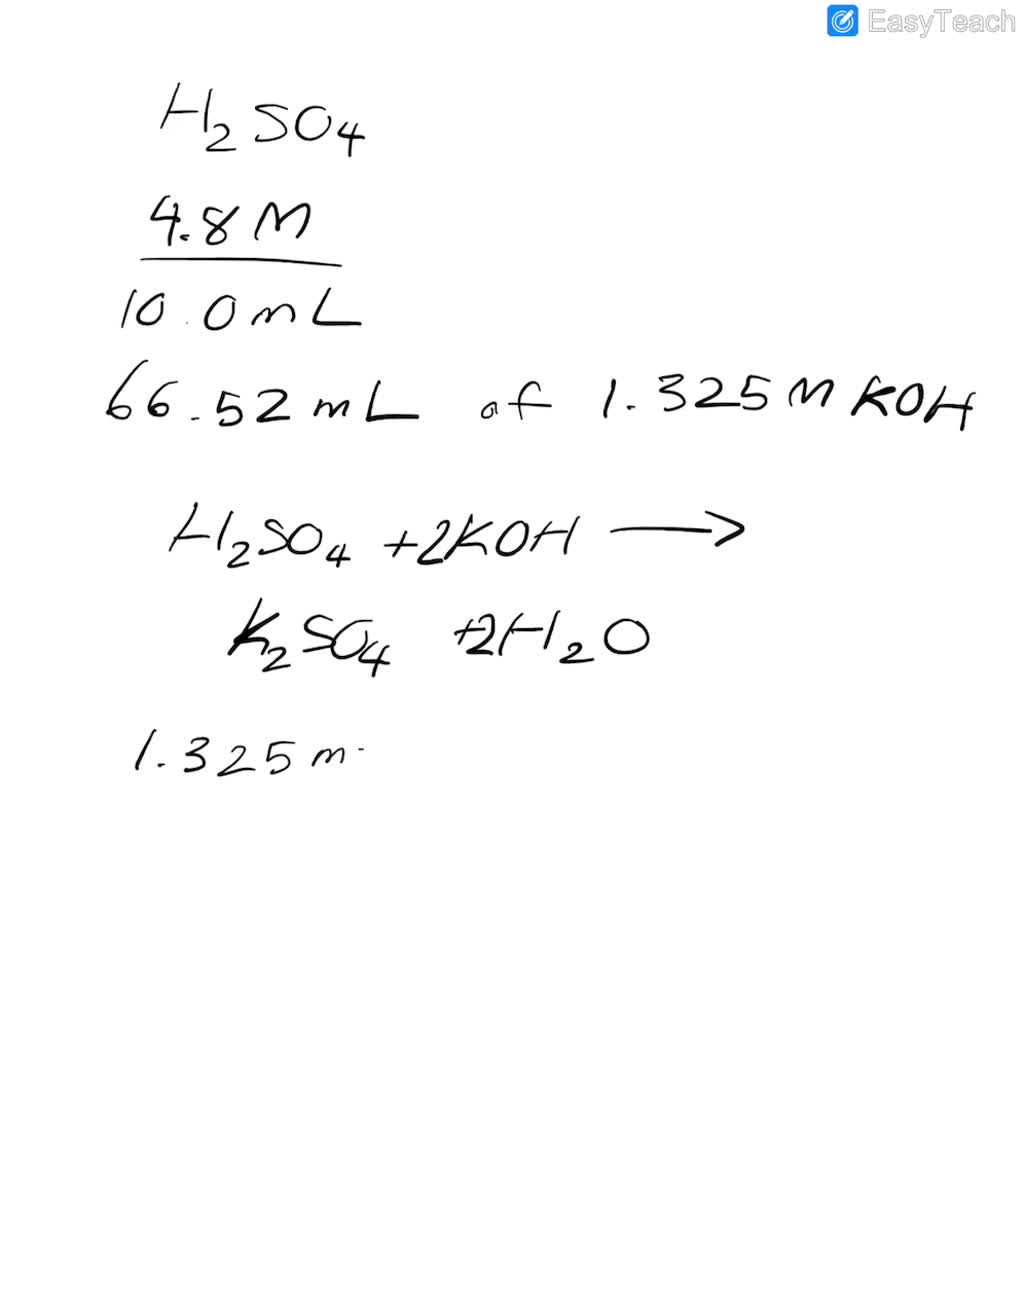 EasyTeach
H₂SO₄
4.8 M
10.0 mL
66.52 mL of 1.325 M KOH
H₂SO₄ + 2KOH ⟶
K₂SO₄ + 2H₂O
1.325 m